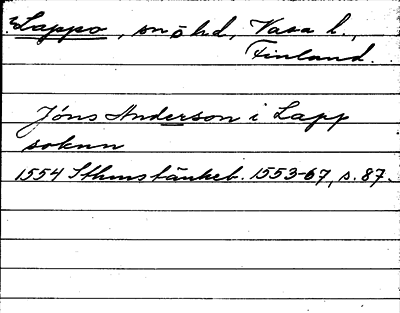 ?Lappo, sn o hd, Vasa l.,
Finland.
Jöns Anderson i Lapp
soknn
1554 Sthms tänkeb. 1553-67, s. 87.